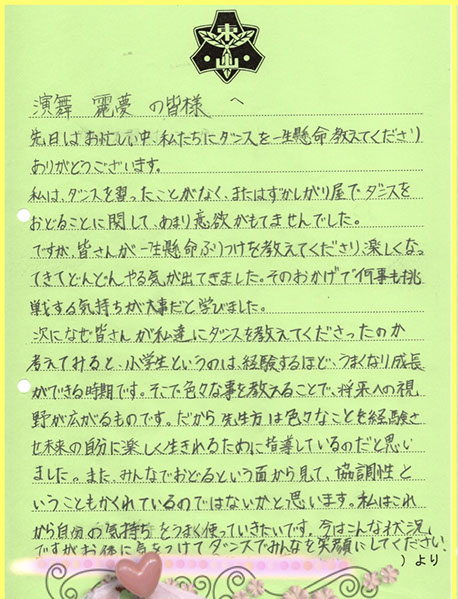 東山
演舞 麗夢 の皆様 へ
先日はお忙しい中、私たちにダンスを一生懸命教えてくださり
ありがとうございます。
私は、ダンスを習ったことがなく、またはずかしがり屋でダンスを
おどることに関して、あまり意欲がもてませんでした。
ですが、皆さんが一生懸命ふりつけを教えてくださり、楽しくなっ
てきてどんどんやる気が出てきました。そのおかげで何事も挑
戦する気持ちが大事だと学びました。
次になぜ皆さんが私達にダンスを教えてくださったのか
考えてみると、小学生というのは、経験するほど、うまくなり成長
ができる時期です。そこで色々な事を教えることで、将来への視
野が広がるものです。だから先生方は色々なことを経験さ
せ未来の自分に楽しく生きれるために指導しているのだと思い
ました。また、みんなでおどるという面から見て、協調性と
いうこともかくれているのではないかと思います。私はこれ
から自分の気持ちをうまく使っていきたいです。今はこんな状況
ですがお体に気をつけてダンスでみんなを笑顔にしてください!
)より